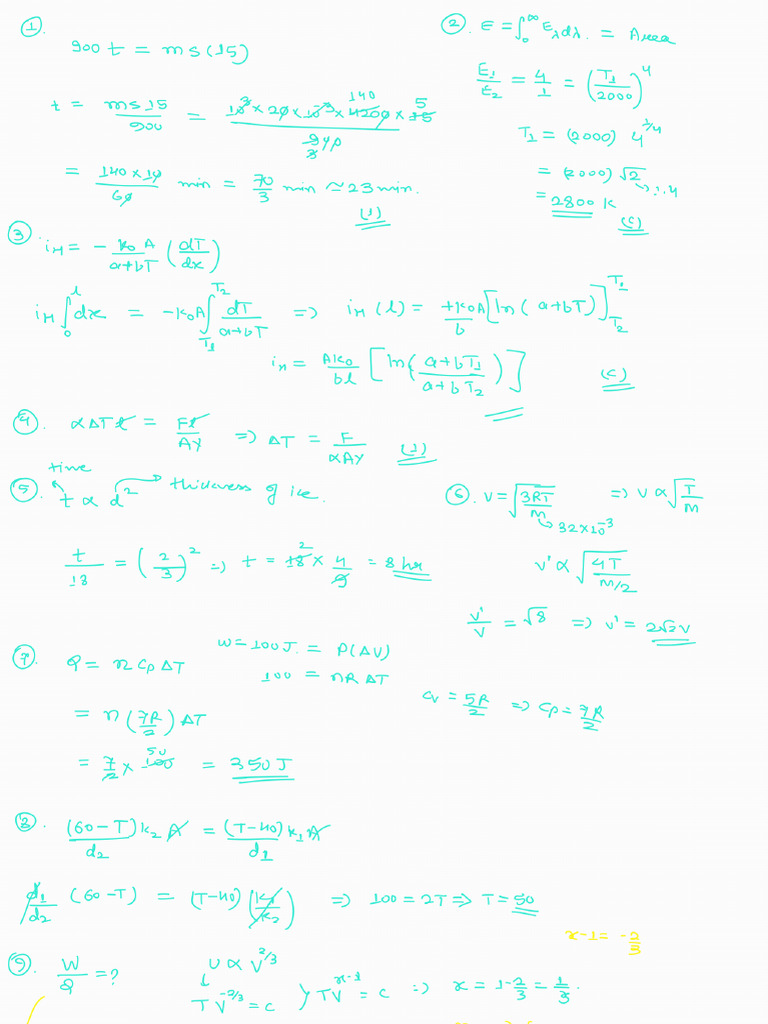 ①.
900 t = ms(15)
t = ms15/900 = 10³ × 20 × 10⁻³ × 4200 × 15 / 900
140 5
3
= 140 × 10/60 min = 70/3 min ≃ 23 min.
(1)
②. E = ∫₀^∞ E_λ dλ. = Area
E₁/E₂ = 4/1 = (T₁/2000)⁴
T₁ = (2000) 4^(1/4)
= (2000) √2 → 1.4
= 2800 K
(C)
③ i_H = - k₀A/(a+bT) (dT/dx)
i_H ∫₀^l dx = -k₀A ∫_{T₁}^{T₂} dT/(a+bT) => i_H (l) = +k₀A/b [ln(a+bT)]_{T₂}^{T₁}
i_H = Ak₀/bl [ln(a+bT₁/a+bT₂)]
(C)
④. α ΔT l = Fl/AY => ΔT = F/αAY (1)
time
⑤. t α d² → thickness of ice.
t/18 = (2/3)² => t = 18 × 4/9 = 8 hr
2
⑥. v = √(3RT/M) => v α √(T/M)
→ 32×10⁻³
v' α √(4T/M/2)
v'/v = √8 => v' = 2√2v
⑦. Q = n Cp ΔT
W = 100J. = P(ΔV)
100 = nR ΔT
Cv = 5R/2 => Cp = 7R/2
= n (7R/2) ΔT
= 7/2 × 100 = 350 J
50
⑧. (60-T)k₂A/d₂ = (T-40)k₁A/d₁
d₁/d₂ (60-T) = (T-40) (k₁/k₂) => 100 = 2T => T = 50
x-1 = -2/3
⑨. W/Q = ?
U α V^(2/3)
↓
TV^(-2/3) = C } TV^(x-1) = C => x = 1-2/3 = 1/3.